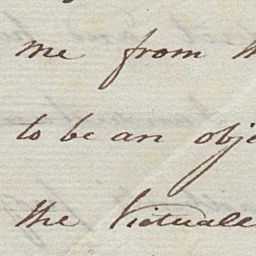 me from
to be an obj
the Victualle